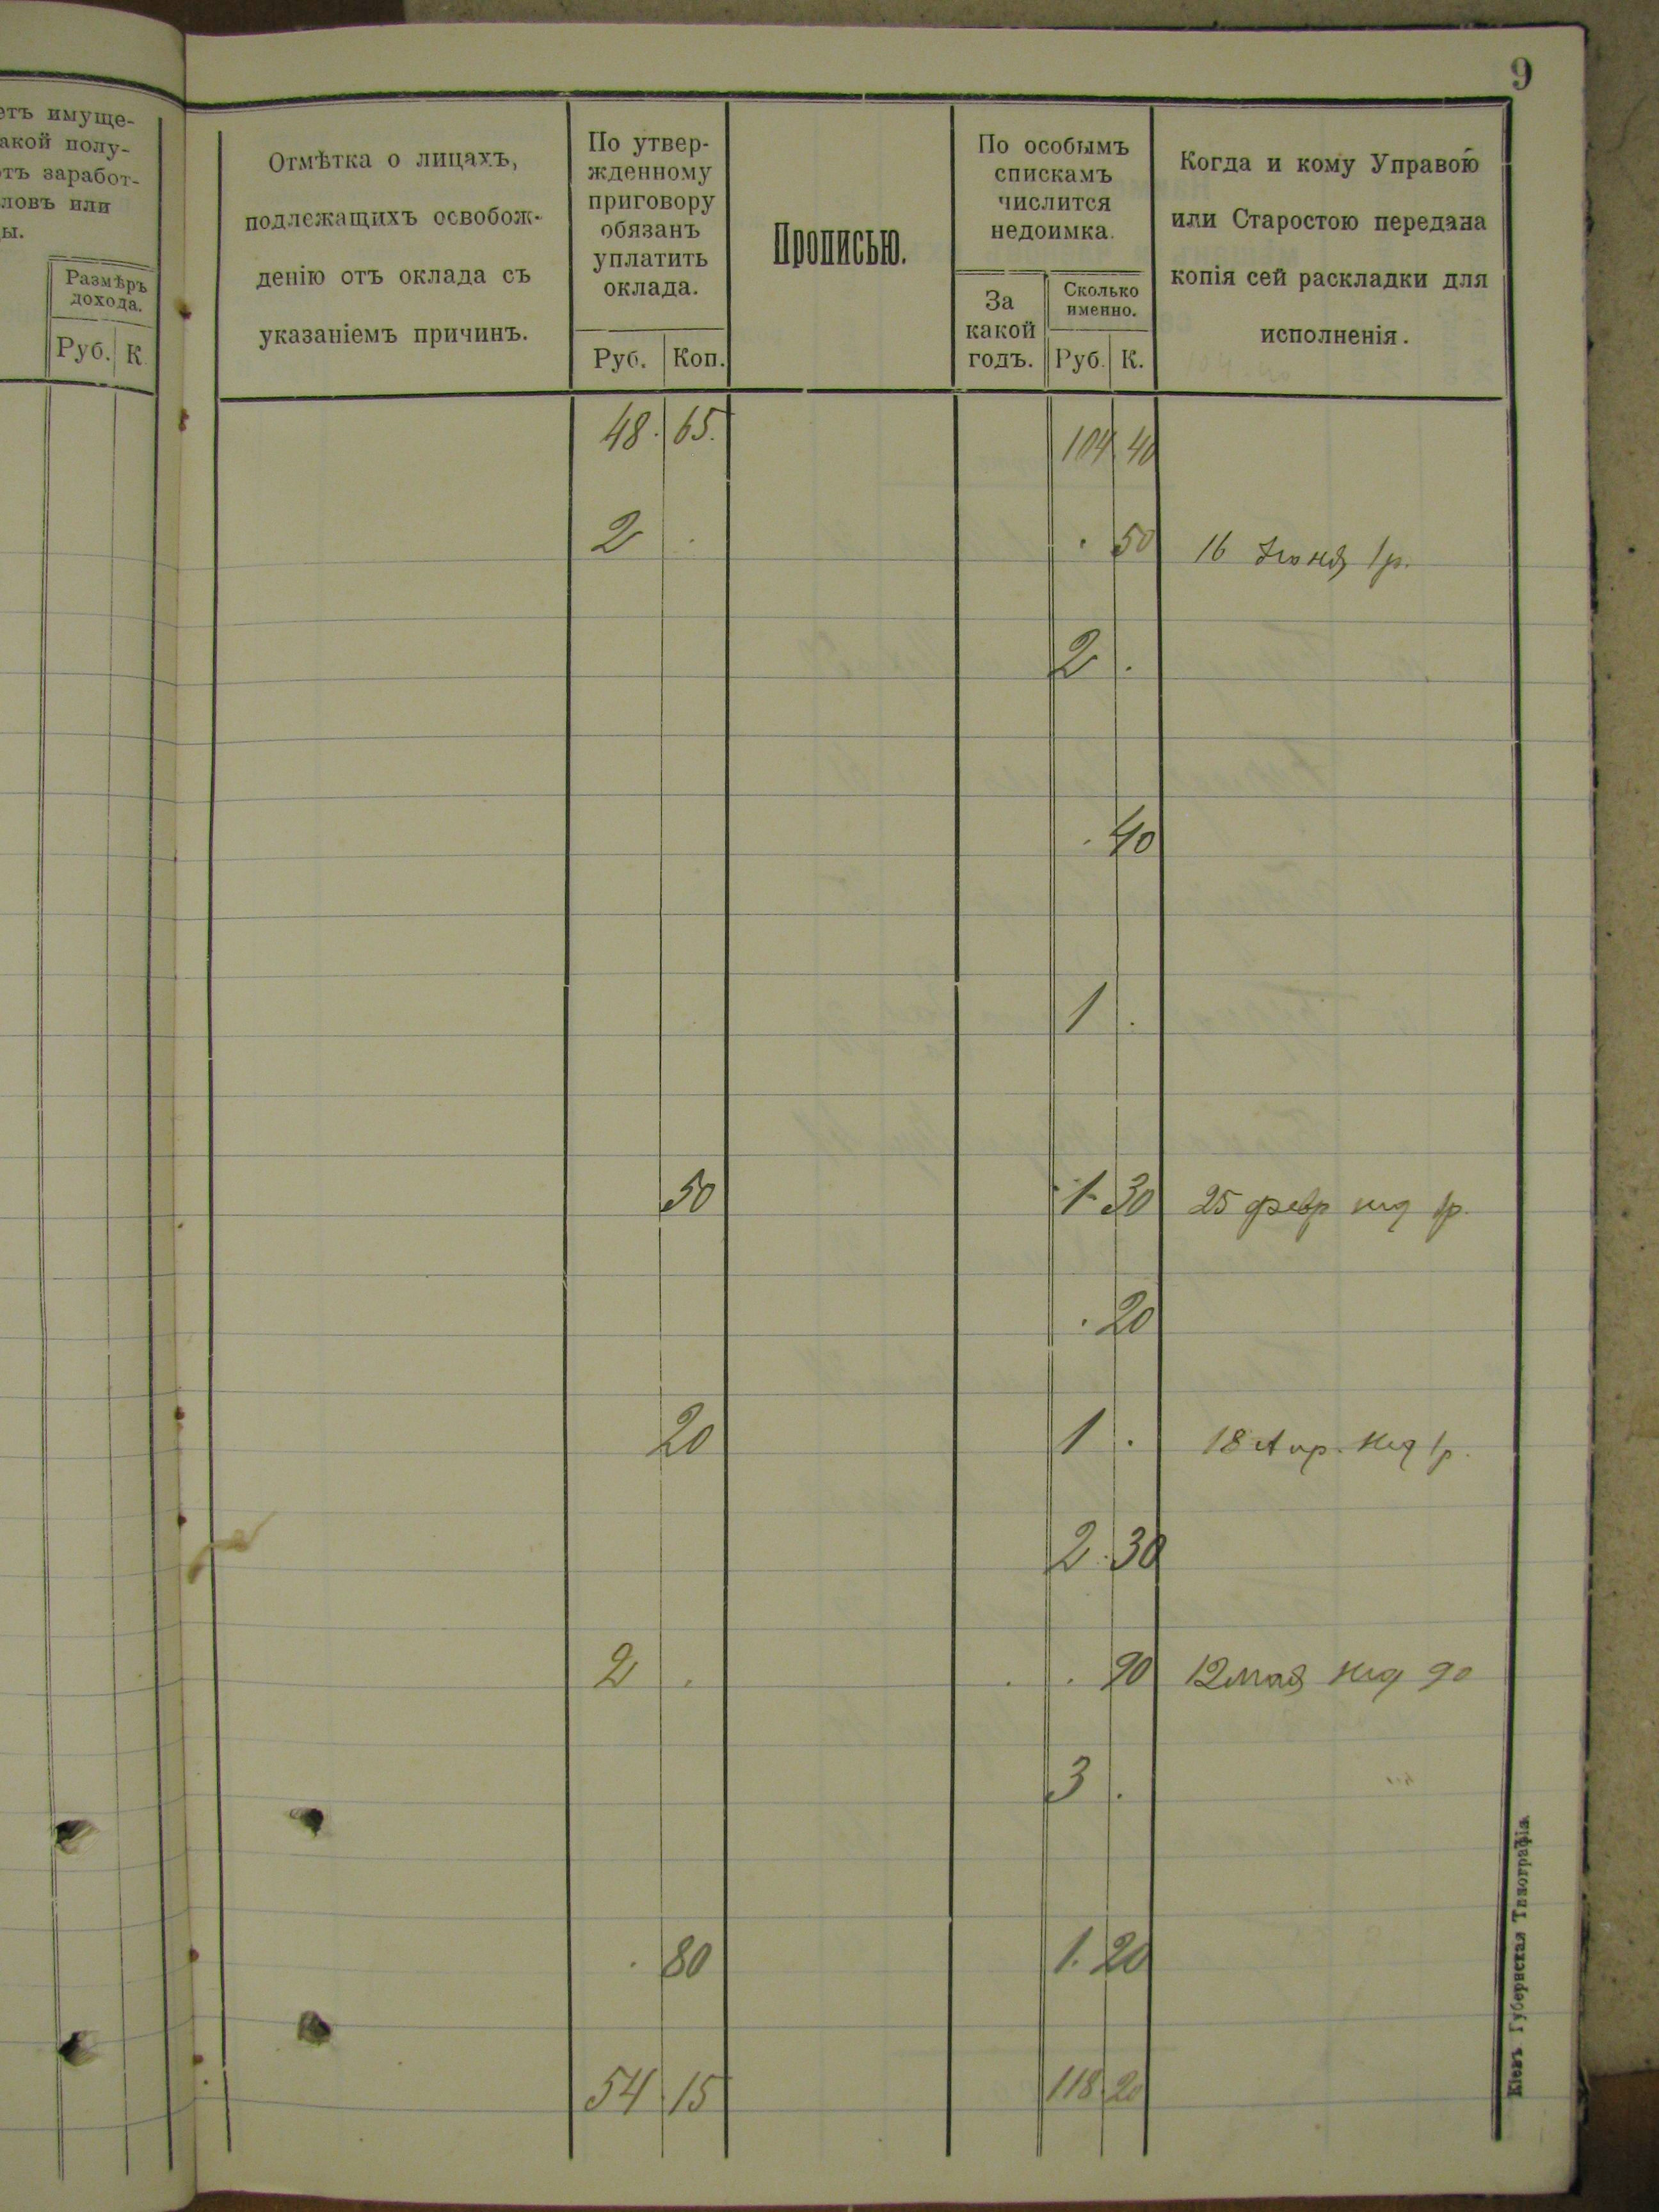 9
етъ имуще-
акой полу-
отъ заработ-
ловъ или
ы.
Размѣръ
дохода.
Руб. К
Отмѣтка о лицахъ,
подлежащихъ освобож-
денію отъ оклада съ
указаніемъ причинъ.
По утвер-
жденному
приговору
обязанъ
уплатить
оклада.
Руб. Коп.
Прописью.
По особымъ
спискамъ
числится
недоимка.
За
какой
годъ.
Сколько
именно.
Руб. К.
Когда и кому Управою
или Старостою передана
копія сей раскладки для
исполненія.
48. 65. 104 40
2 . . 50 16 Июня 1р.
2 .
. 40
1 .
50 1 30 25 февр нед 1р.
. 20
20 1 . 18 Апр. нед 1р.
2. 30
2 . . . 90 12 мая нед 90
3 .
. 80 1. 20
54. 15 118. 20
Кіевъ Губернская Типографія.